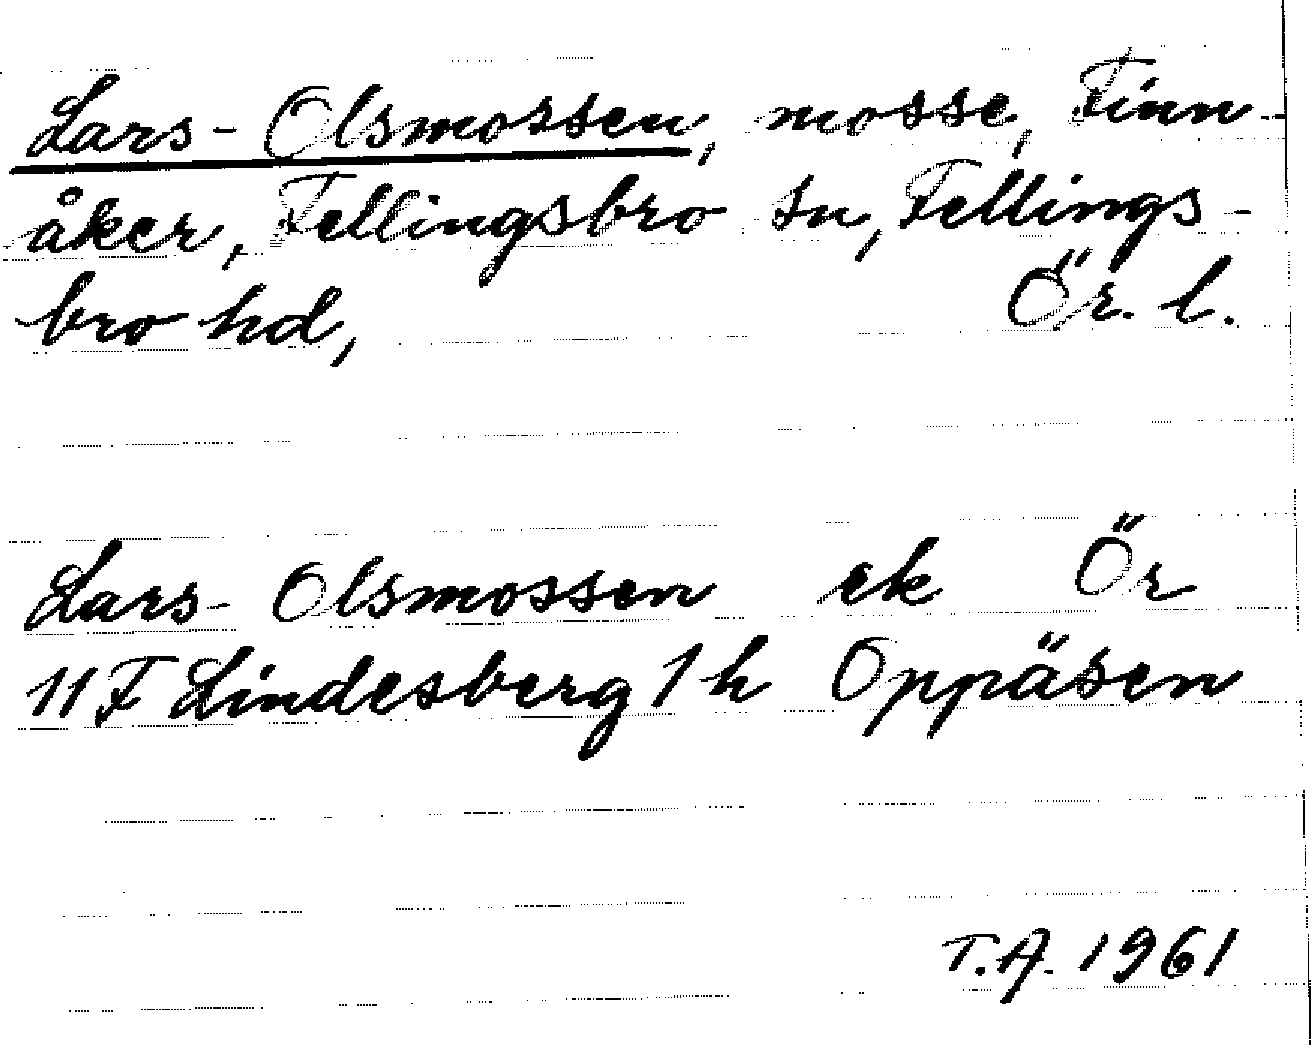 Lars-Olsmossen, mosse, Finn-
åker, Fellingsbro sn, Fellings-
bro hd, Ör. l.
Lars-Olsmossen ek Ör
11F Lindesberg 1h Oppåsen
T.A. 1961